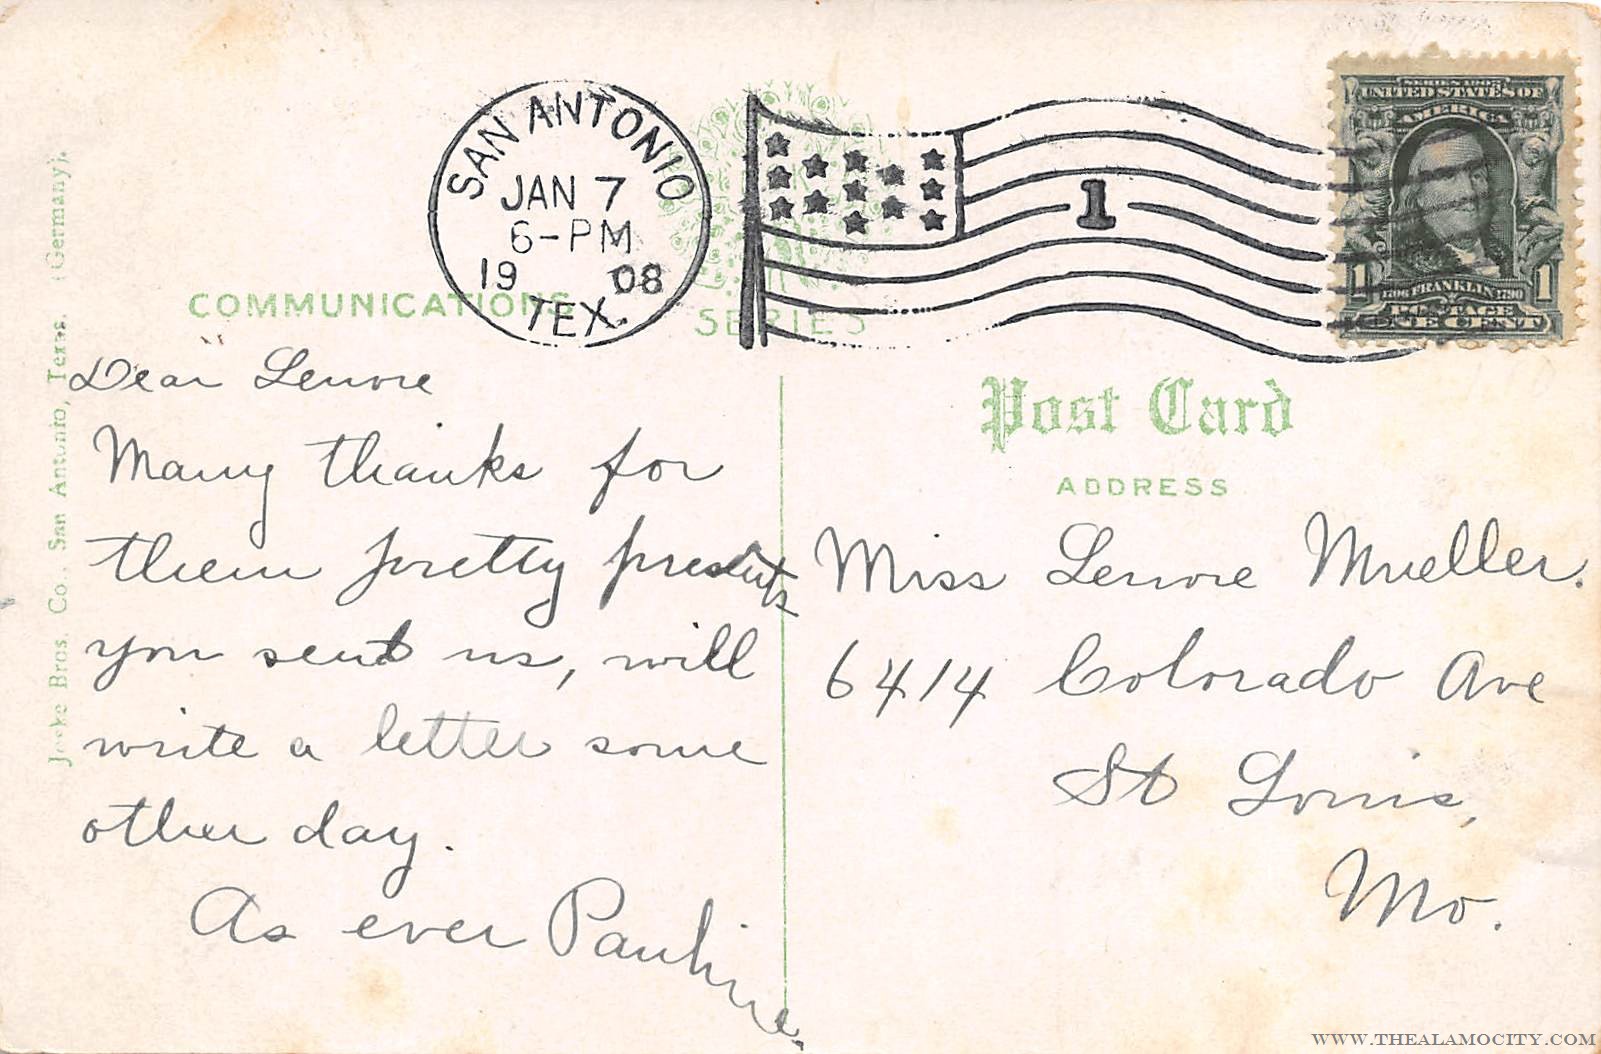 SAN ANTONIO
JAN 7
6-PM
19 08
TEX.
1
SERIES 1902
UNITED STATES OF
AMERICA
1 1706 FRANKLIN 1790 1
POSTAGE
ONE CENT
COMMUNICATIONS
SERIES
Post Card
ADDRESS
Joske Bros. Co., San Antonio, Texas. (Germany).
Dear Lenore
Many thanks for
them pretty presents
you sent us, will
write a letter some
other day.
As ever Pauline.
Miss Lenore Mueller.
6414 Colorado Ave
St Louis,
Mo.
WWW.THEALAMOCITY.COM